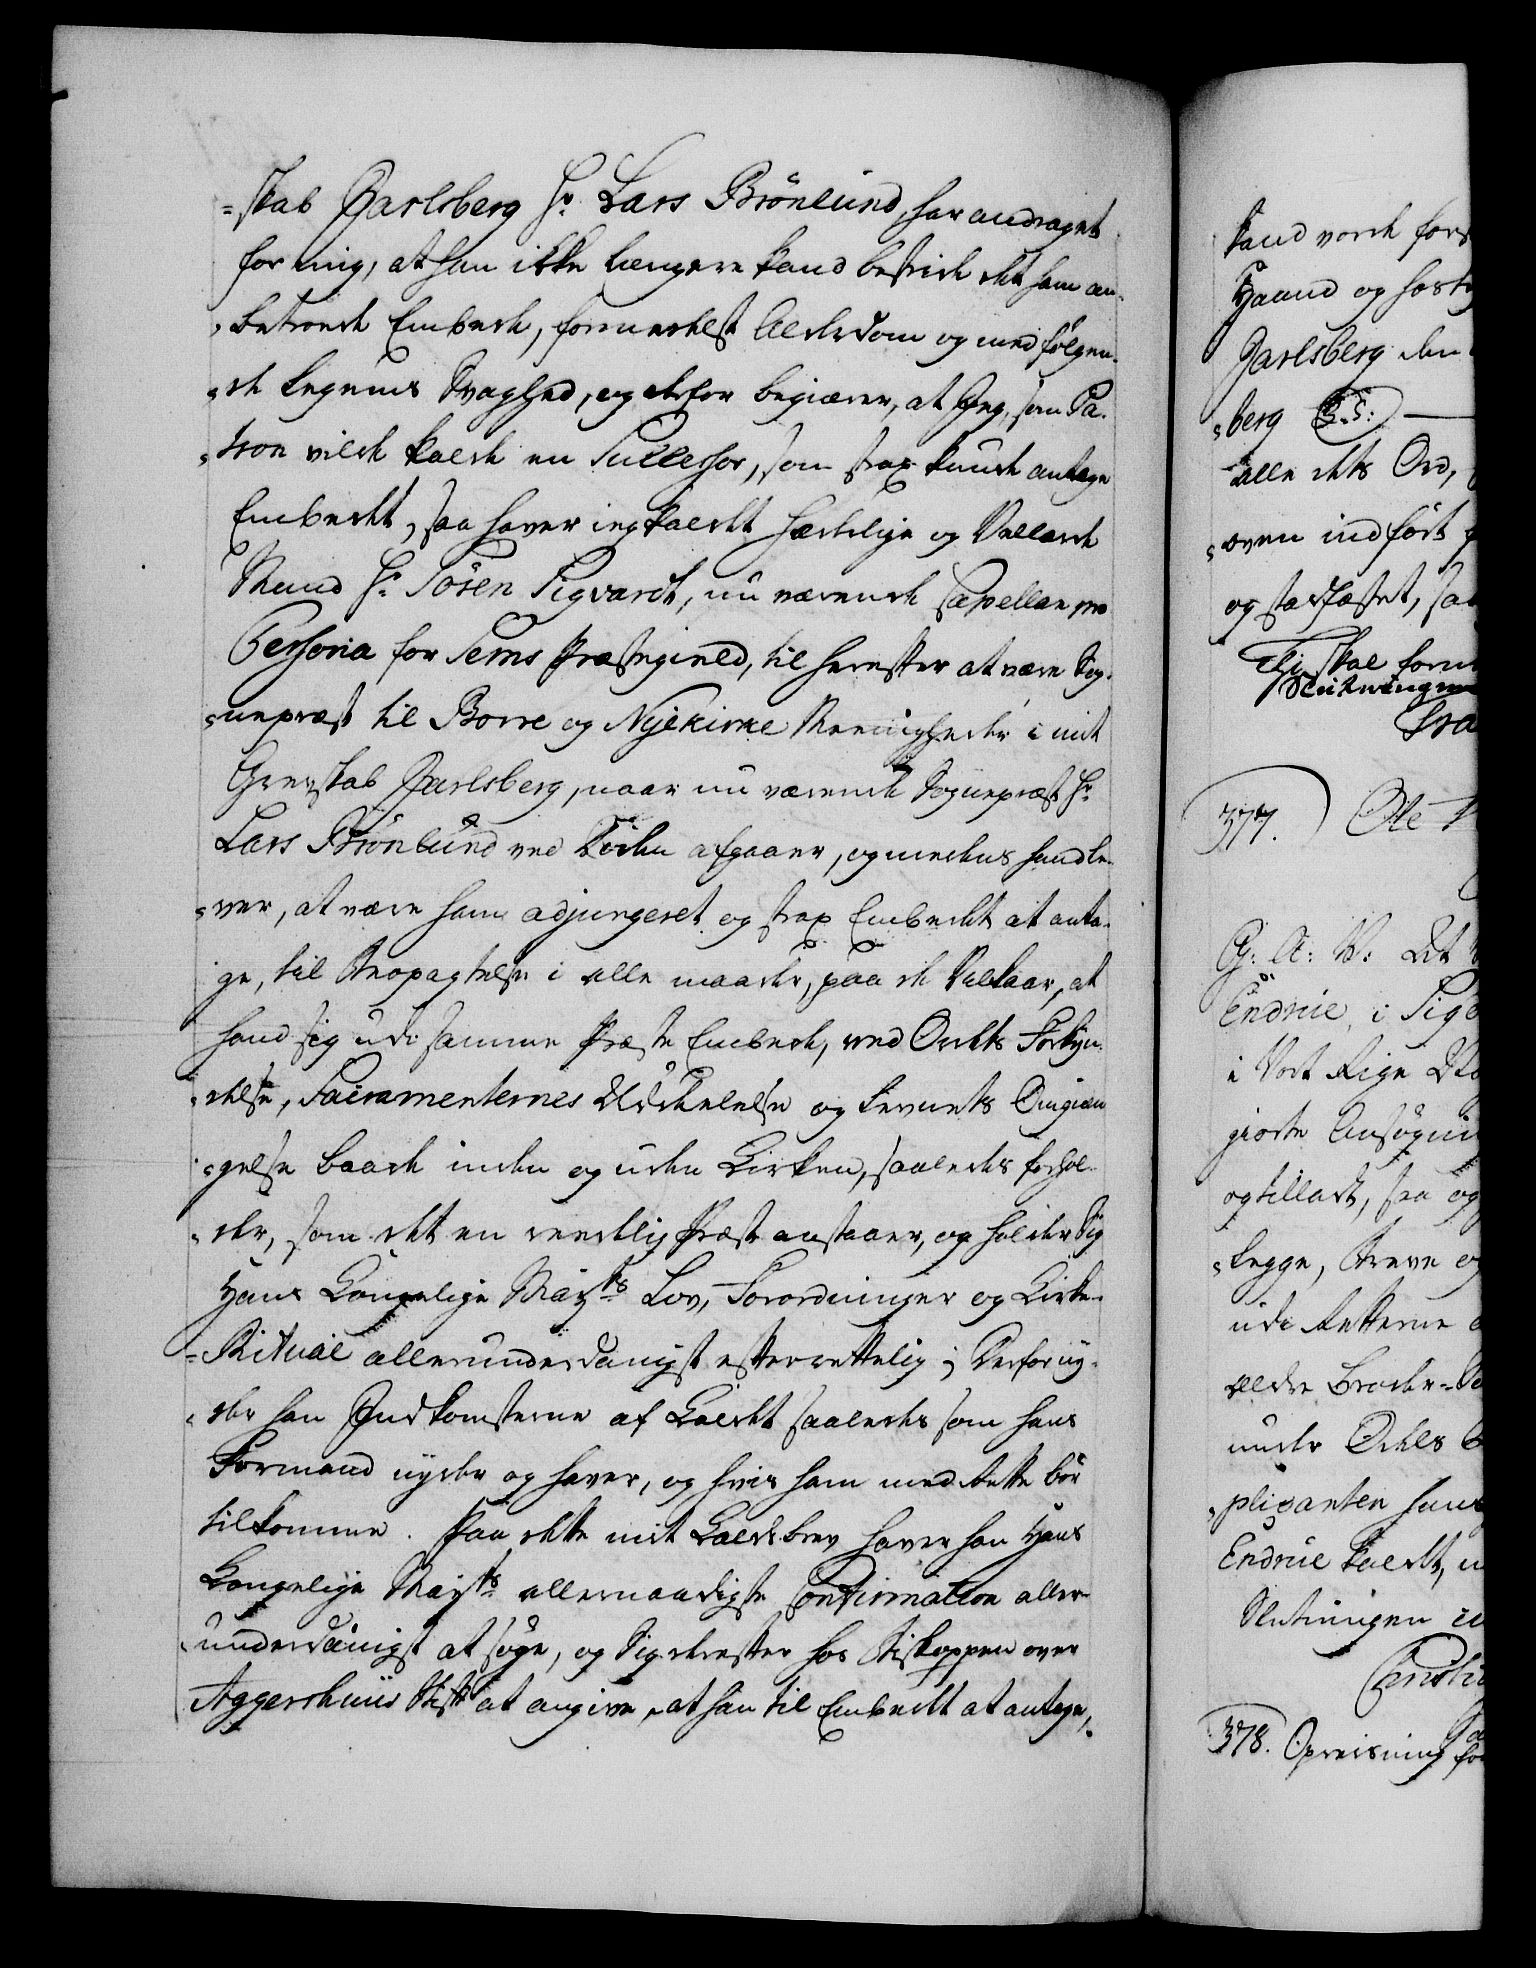 =skab Jarlsberg Hr. Lars Brönlund, har andraget
for mig, at han ikke længere kand bestride det ham an-
=betroede Embede, formedelst Alderdom og medfölgen-
=de Legems Svaghed, og derfor begiærer, at Jeg, som Pa-
=tron vilde kalde en Successor, som strax kunde antage
Embedet, saa haver jeg kaldet Hæderlige og Vellærde
Mand Hr. Sören Sigvardt, nu værende Capellan pro
Persona for Sems Præstegield, til herefter at være Sog-
=nepræst til Borre og Nyekirke Menigheder i mit
Grevskab Jarlsberg, naar nu værende Sognepræst Hr.
Lars Brönlund ved Döden afgaaer, og medens hand le-
=ver, at være ham adjungeret og strax Embedet at anta-
ge, til Menighedens i alle maader, paa de Vilkaar, at
hand sig udi samme Præste Embede, med Ordets Forkyn-
=delse, Sacramenternes Uddeelelse og Levnets Omgiæn
=gelse baade inden og uden Kirken, saaledes forhol-
=der, som det en reedelig Præst anstaaer, og holder Sig
Hans Kongelige Mayts Lov, Forordninger og Kirke-
=Ritual allerunderdanigst efterrettelig; Derfor ny-
=der han Indkomsterne af Kaldet saaledes som hans
Formand nyder og haver, og hvis ham med Rette bör
tilkomme. Paa dette mit Kaldsbrev haver han Hans
Kongelige Mayts allernaadigste Confirmation aller-
=underdanigst at söge, og Sig derefter hos Biskoppen over
Aggershuus Stift at angive, at han til Embedet at antage,
kand vorde fors
Haand og hostr
Jarlsberg den
=berg (L.S.)
alle dets Ord,
=oven indfört
og stadfæstet, saa
Thi skal form

377. Ole
G: A: V: At
Endrue, i Sig
i Vort Rige
giorte Ansögnin
og tilladt, saa og
=legge, Breve og
udi Retterne
ældre Broder-
under Ordets
=plicanten hans
Endrue kaldet,
Slutningen
Christi
378. Opreisning for